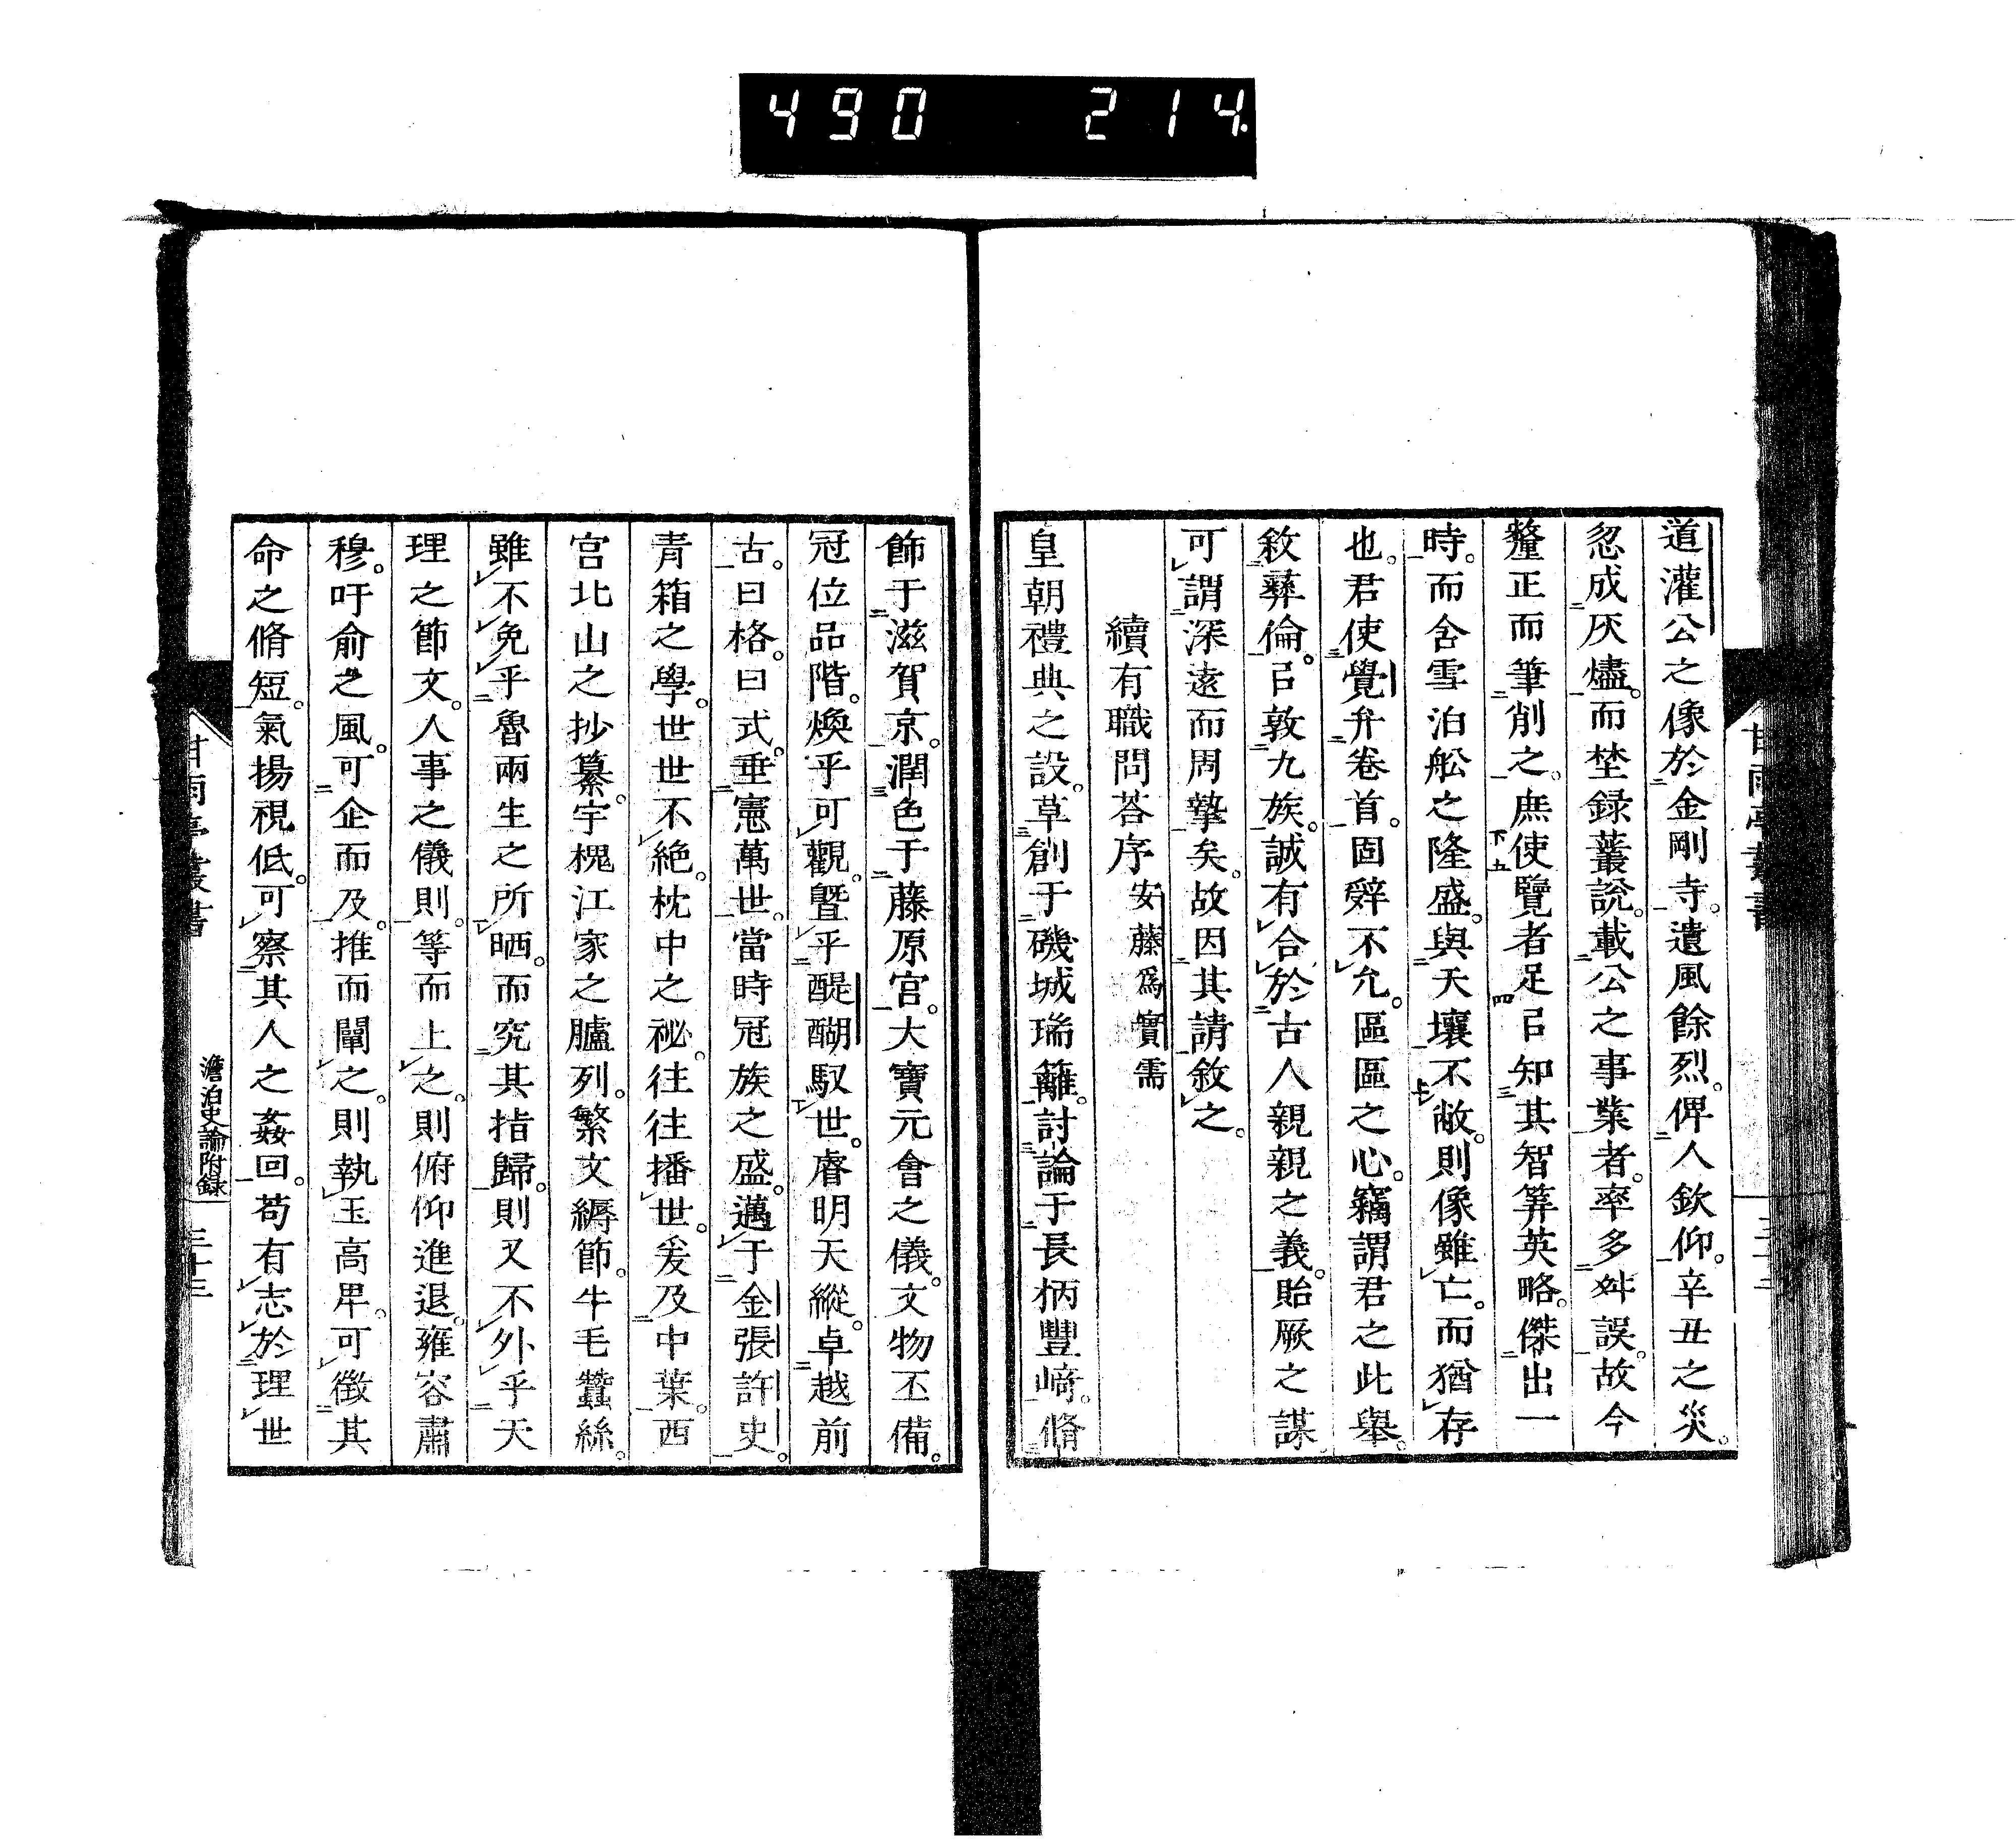 490 214.
道灌公之像於金剛寺。遺風餘烈。俾人欽仰。辛丑之災。
忽成灰燼。而埜録叢說。載公之事業者。率多舛誤。故今
釐正而筆削之。庶使覽者足㠯知其智筭英略。傑出一
時。而含雪泊舩之隆盛。與天壤不敝。則像雖亡。而猶存
也。君使覺弁卷首。固辤不允。區區之心。竊謂君之此舉。
敘彝倫。㠯敦九族。誠有合於古人親親之義。貽厥之謀。
可謂深遠而周摯矣。故因其請敘之。
續有職問荅序 安藤爲實需
皇朝禮典之設。草創于磯城瑞籬。討論于長柄豐﨑。脩
飾于滋賀京。潤色于藤原宮。大寶元會之儀。文物丕備。
冠位品階。煥乎可觀。曁乎醍醐馭世。睿明天縱。卓越前
古。曰格。曰式。垂憲萬世。當時冠族之盛。邁于金張許史。
青箱之學。世世不絕。枕中之祕。往往播世。爰及中葉。西
宮北山之抄纂。宇槐江家之臚列。繁文縟節。牛毛蠶絲。
雖不免乎魯兩生之所哂。而究其指歸。則又不外乎天
理之節文。人事之儀則。等而上之。則俯仰進退。雍容肅
穆。吁俞之風。可企而及。推而闡之。則執玉高卑。可徵其
命之脩短。氣揚視低。可察其人之姦回。苟有志於理世
甘雨亭叢書
澹泊史論附録
三十三